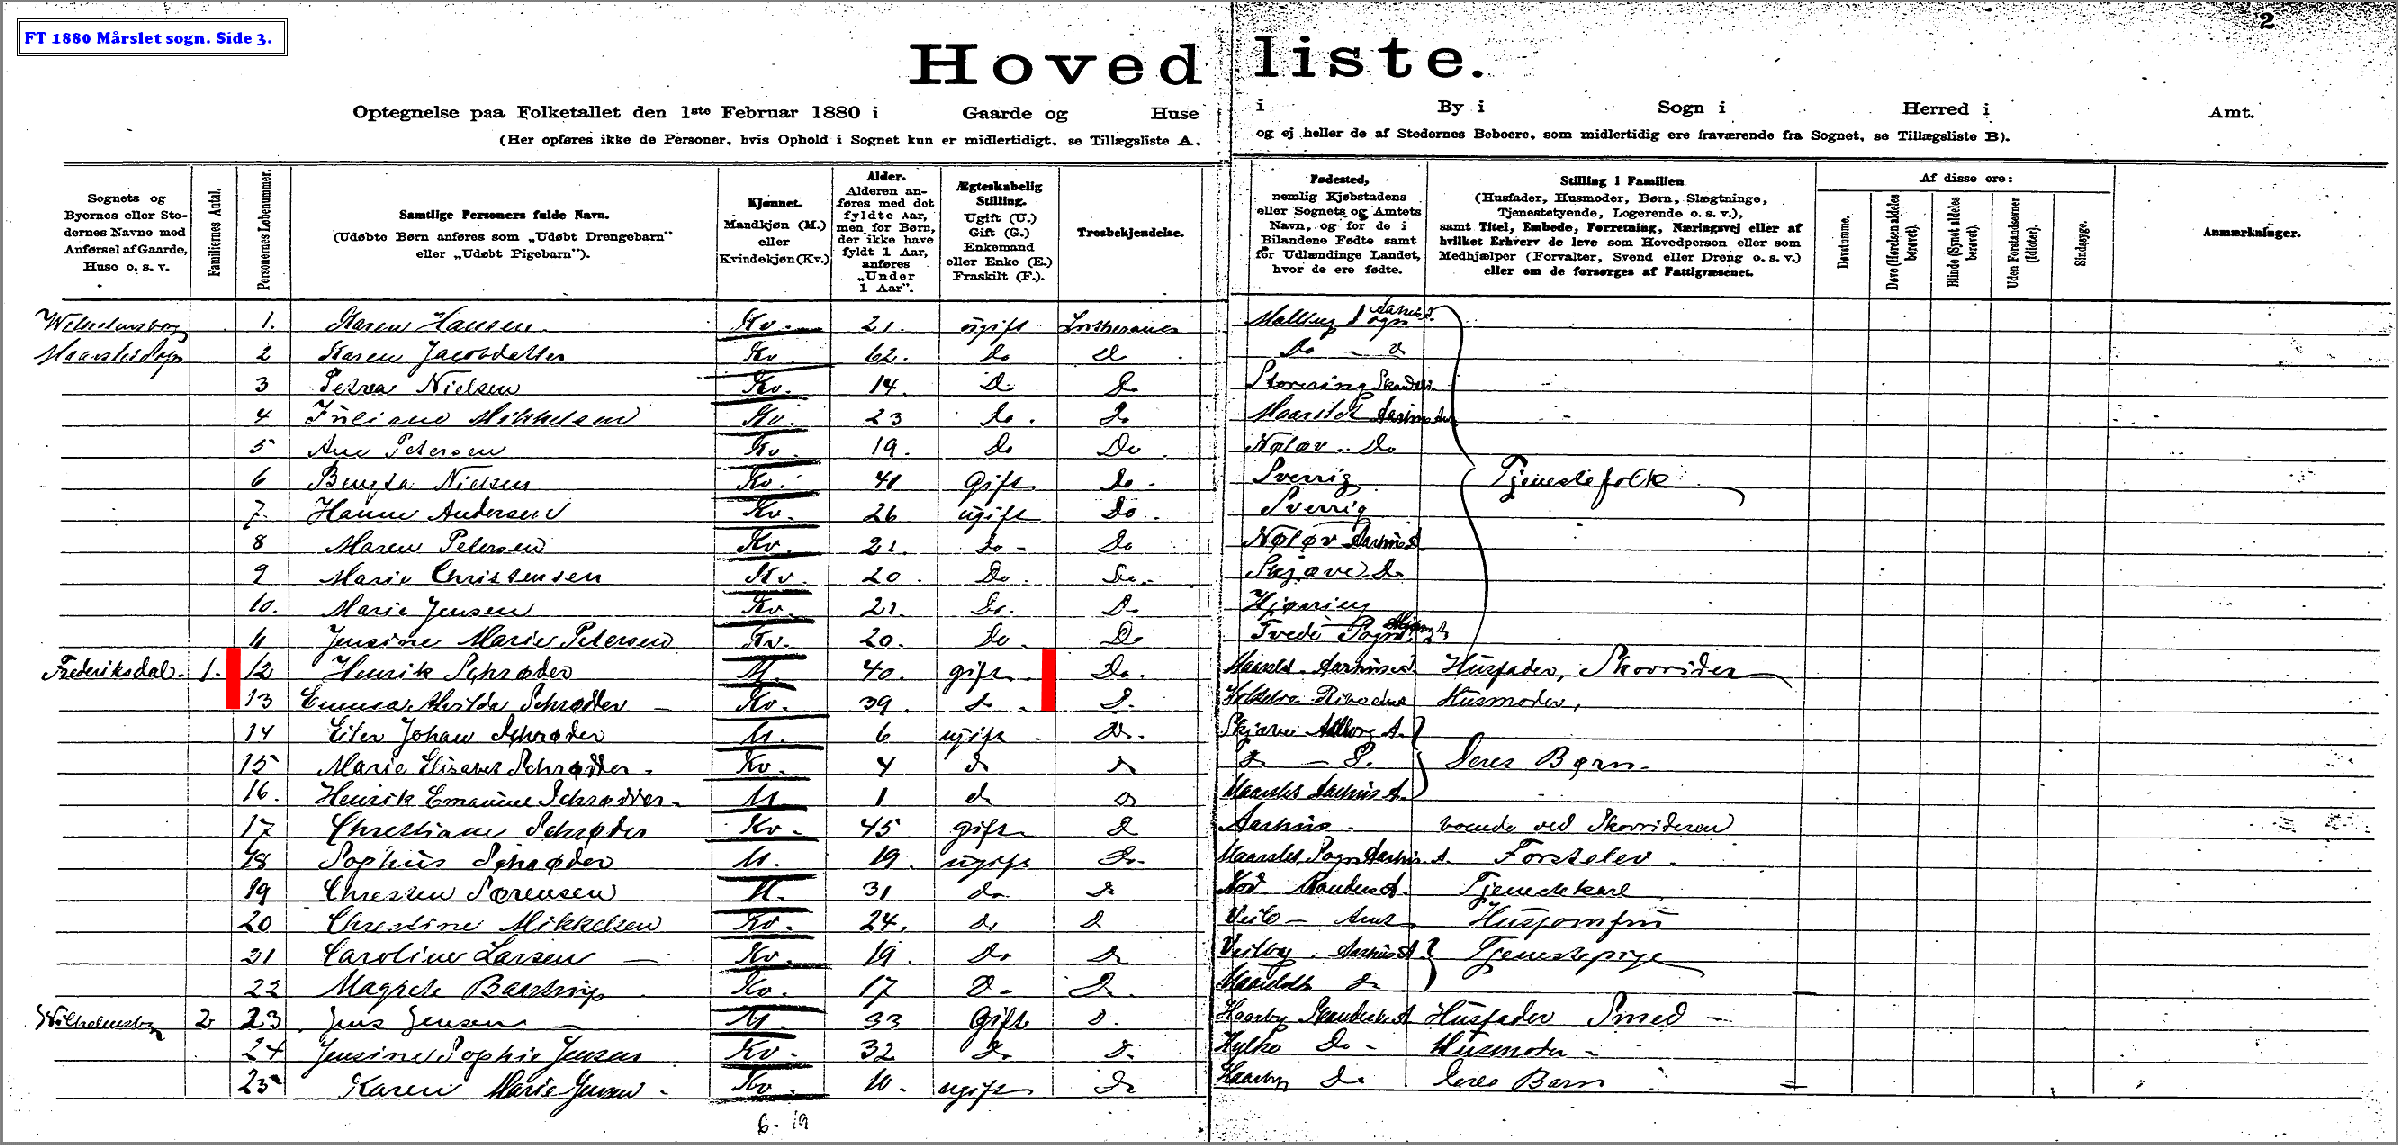 FT 1880 Mårslet sogn. Side 3.
2
Hovedliste.
Optegnelse paa Folketallet den 1ste Februar 1880 i Gaarde og Huse i By i Sogn i Herred i Amt.
(Her opføres ikke de Personer, hvis Ophold i Sognet kun er midlertidigt, se Tillægsliste A, og ej heller de af Stedernes Beboere, som midlertidig ere fraværende fra Sognet, se Tillægsliste B).
Sognets og
Byernes eller Ste-
dernes Navne med
Anførsel af Gaarde,
Huse o. s. v.
Familiernes Antal.
Personernes Løbenummer.
Samtlige Personers fulde Navn.
(Udøbte Børn anføres som „Udøbt Drengebarn“
eller „Udøbt Pigebarn“).
Kjønnet.
Mandkjøn (M.)
eller
Kvindekjøn (Kv.)
Alder.
Alderen an-
føres med det
fyldte Aar,
men for Børn,
der ikke have
fyldt 1 Aar,
anføres
„Under
1 Aar“.
Ægteskabelig
Stilling.
Ugift (U.)
Gift (G.)
Enkemand
eller Enke (E.)
Fraskilt (F.).
Trosbekjendelse.
Fødested,
nemlig Kjøbstadens
eller Sognets og Amtets
Navn, og for de i
Bilandene Fødte samt
for Udlændinge Landet,
hvor de ere fødte.
Stilling i Familien
(Husfader, Husmoder, Børn, Slægtninge,
Tjenestetyende, Logerende o. s. v.),
samt Titel, Embede, Forretning, Næringsvej eller af
hvilket Erhverv de leve som Hovedperson eller som
Medhjælper (Forvalter, Svend eller Dreng o. s. v.)
eller om de forsørges af Fattigvæsenet.
Af disse ere:
Døvstumme.
Døve (Hørelsen aldeles berøvet).
Blinde (Synet aldeles berøvet).
Uden Forstandsevner (Idioter).
Sindssyge.
Anmærkninger.
Wilhelmsborg 1. Karen Hansen Kv. 21. ugift Lutheraner Malling Sogn
Maarslet Sogn 2 Karen Jacobdatter Kv 62. do do do
3 Petrea Nielsen Kv. 14. do do Storring
4 Juliane Mikkelsen Kv. 23 do. do Maarslet Aarhus
5 Ane Petersen Kv. 19. do Do Nølev Do
6 Bengta Nielsen Kv. 41 Gift do. Sverrig Tjenestefolk
7 Hanne Andersen Kv. 26 ugift Do. Sverrig
8 Maren Petersen Kv. 21. do Do Nølev
9 Marie Christensen Kv. 20. Do. Do
10. Marie Jensen Kv. 21. Do. D.
11 Jensine Marie Petersen Kv. 20. Do Do Tvede Sogn
Frederiksdal. 1. 12 Henrik Schrøder M. 40. gift Do. Husfader, Skovrider
13 Emma Schrøder Kv. 39. Husmoder,
14 Johan Schrøder M. 6 ugift
15 Marie Elisabet Schrøder. Kv. 4 Deres Børn.
16. Henrik Emanuel Schrøder M 1 Maarslet Aarhus A.
17 Christiane Schrøder Kv. 45 gift Aarhus boende ved Skovrideren
18 Sophus Schrøder M. 19. ugift Maarslet Sogn Aarhus A. Forstelev.
19 Chresten Sørensen M. 31 do Randers A. Tjenestekarl
20 Christine Mikkelsen Kv. 24. do Veile Amt Husjomfru
21 Caroline Larsen Kv. 19. Do Aarhus A Tjenestepige
22 Magrete Kv. 17
Wilhelmsborg 2 23 Jens Jensen M 33 Gift Husfader Smed
24 Jensine Sophie Jensen Kv. 32 Do. Husmoder
25 Karen Marie Jensen Kv 10. ugift Deres Barn
6. 19